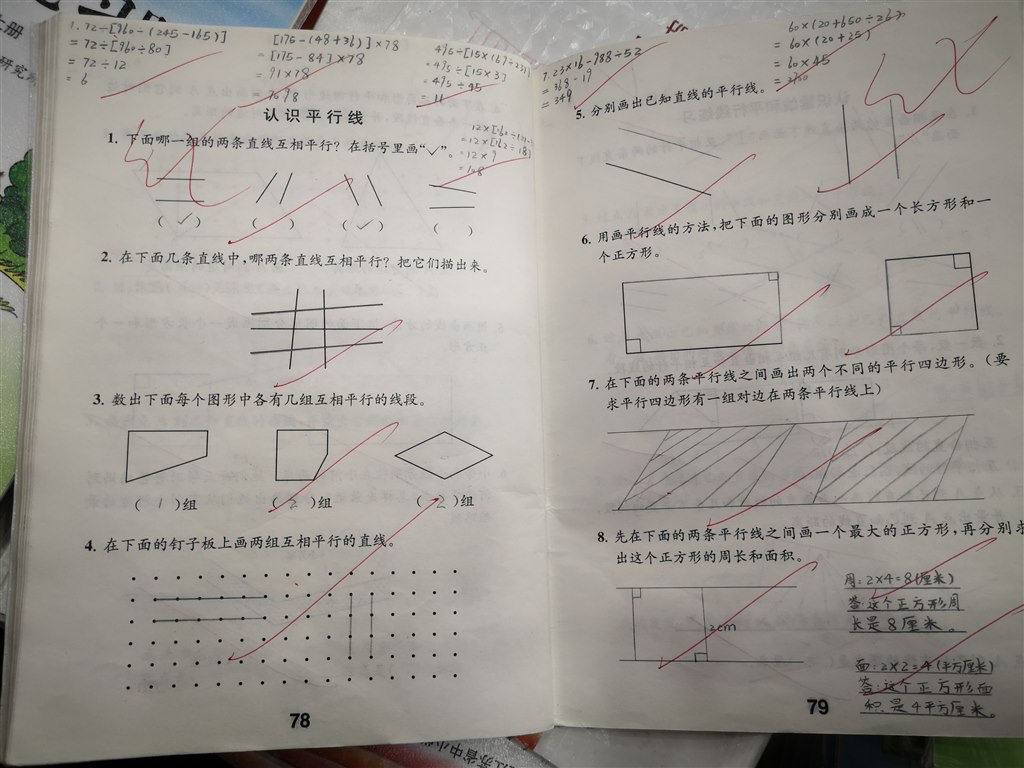 1. 72÷[960÷(245-165)]
= 72÷[960÷80]
= 72÷12
= 6
[175-(48+36)]×78
= [175-84]×78
= 91×78
= 7098
495÷[15×(
= 495÷[15×3]
= 495÷45
= 11
认识平行线
12×[
= 12×[162÷18]
= 12×9
= 108
1. 下面哪一组的两条直线互相平行？在括号里画“✓”。
( ✓ ) ( ) ( ✓ ) ( )
2. 在下面几条直线中，哪两条直线互相平行？把它们描出来。
3. 数出下面每个图形中各有几组互相平行的线段。
( 1 )组 ( 2 )组 ( 2 )组
4. 在下面的钉子板上画两组互相平行的直线。
78
7. 23×16-988÷52
= 368-19
= 349
60×(20+650÷26)
= 60×(20+25)
= 60×45
5. 分别画出已知直线的平行线。
6. 用画平行线的方法，把下面的图形分别画成一个长方形和一
个正方形。
7. 在下面的两条平行线之间画出两个不同的平行四边形。（要
求平行四边形有一组对边在两条平行线上）
8. 先在下面的两条平行线之间画一个最大的正方形，再分别求
出这个正方形的周长和面积。
2cm
周：2×4=8(厘米)
答：这个正方形周
长是8厘米。
面：2×2=4(平方厘米)
答：这个正方形面
积是4平方厘米。
79
江苏省中小